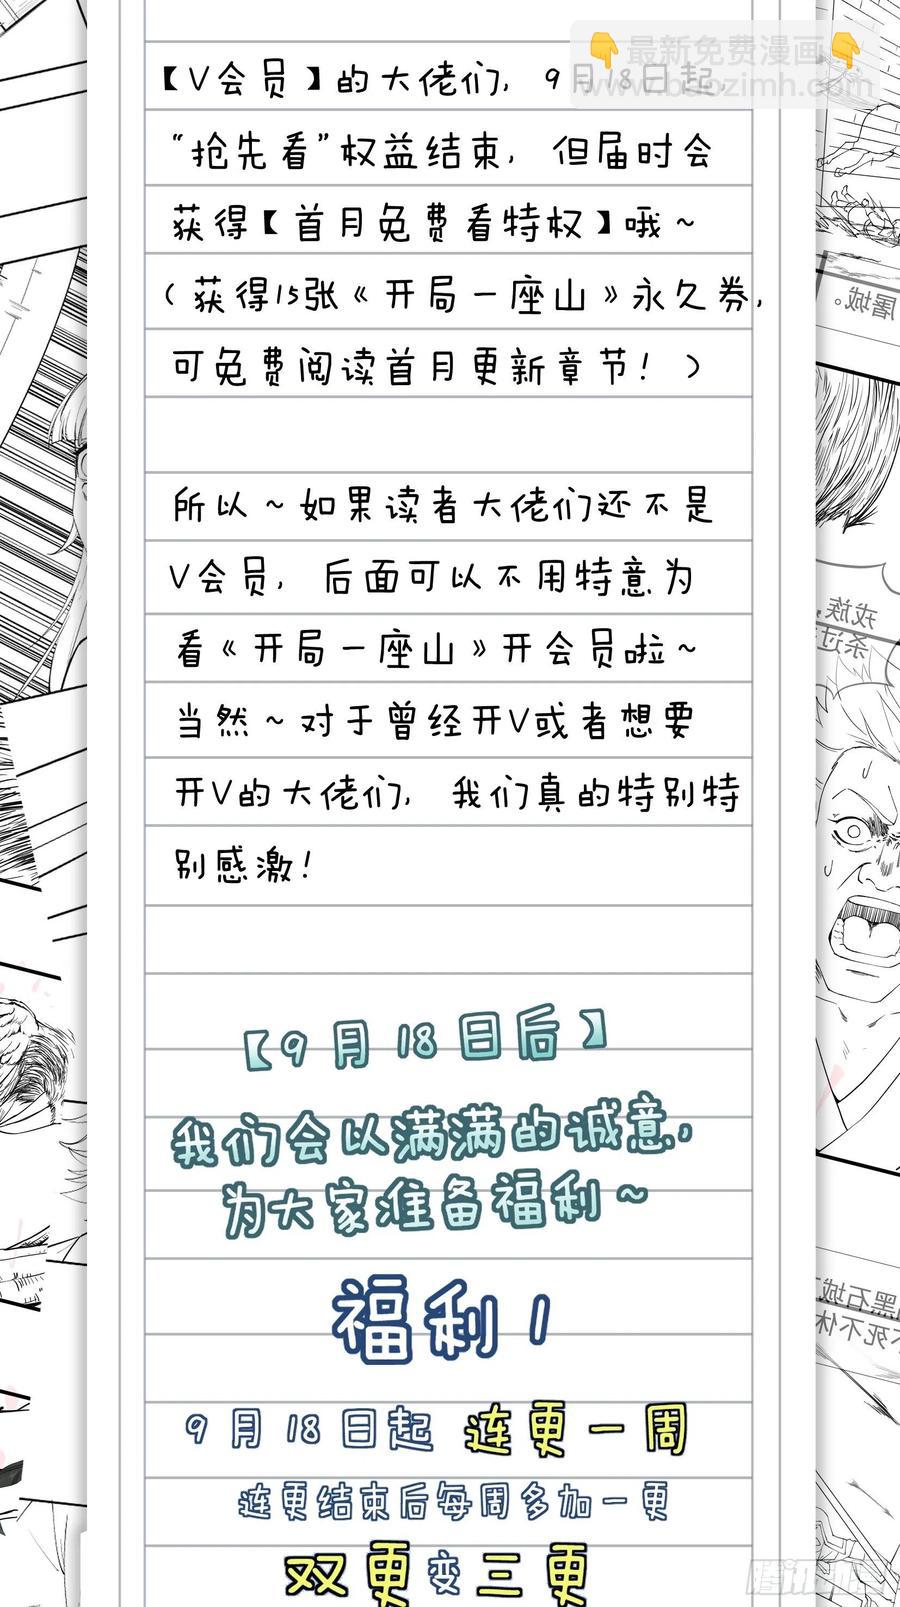 最新免费漫画
www.baozimh.com
【V会员】的大佬们，9月18日起，
“抢先看”权益结束，但届时会
获得【首月免费看特权】哦~
（获得15张《开局一座山》永久券，
可免费阅读首月更新章节！）
所以~如果读者大佬们还不是
V会员，后面可以不用特意为
看《开局一座山》开会员啦~
当然~对于曾经开V或者想要
开V的大佬们，我们真的特别特
别感激！
【9月18日后】
我们会以满满的诚意，
为大家准备福利~
福利1
9月18日起 连更一周
连更结束后每周多加一更
双更变三更
屠城。
戎族
杀过
黑石城
不死不休
腾讯动漫